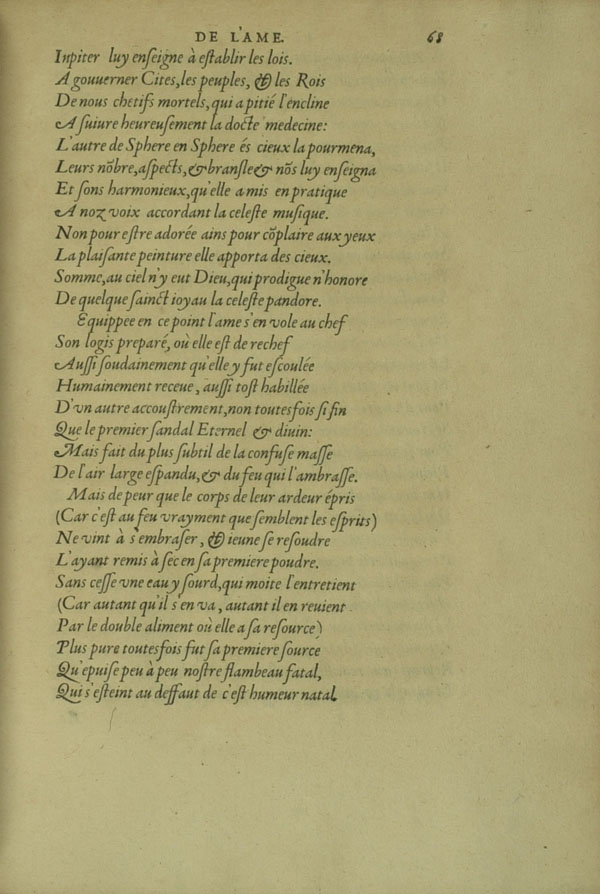 DE L'AME. 68
Iupiter luy enſeigne à eſtablir les lois.
A gouuerner Cites, les peuples, & les Rois
De nous chetifs mortels, qui a pitié l'encline
A ſuiure heureuſement la docte medecine:
L'autre de Sphere en Sphere és cieux la pourmena,
Leurs nõbre, aſpects, & branſle & nõs luy enſeigna
Et ſons harmonieux, qu'elle a mis en pratique
A noz voix accordant la celeſte muſique.
Non pour eſtre adorée ains pour cõplaire aux yeux
La plaiſante peinture elle apporta des cieux.
Somme, au ciel n'y eut Dieu, qui prodigue n'honore
De quelque ſainct ioyau la celeſte pandore.
Equippee en ce point l'ame s'en vole au chef
Son logis preparé, où elle eſt de rechef
Auſſi ſoudainement qu'elle y fut eſcoulée
Humainement receue, auſſi toſt habillée
D'vn autre accouſtrement, non toutesfois ſi fin
Que le premier ſandal Eternel & diuin:
Mais fait du plus ſubtil de la confuſe maſſe
De l'air large eſpandu, & du feu qui l'ambraſſe.
Mais de peur que le corps de leur ardeur épris
(Car c'eſt au feu vrayment que ſemblent les eſprits)
Ne vint à s'embraſer, & ieune ſe reſoudre
L'ayant remis à ſec en ſa premiere poudre.
Sans ceſſe vne eau y ſourd, qui moite l'entretient
(Car autant qu'il s'en va, autant il en reuient
Par le double aliment où elle a ſa reſource)
Plus pure toutesfois fut ſa premiere ſource
Qu'epuiſe peu à peu noſtre flambeau fatal,
Qui s'eſteint au deffaut de c'eſt humeur natal.